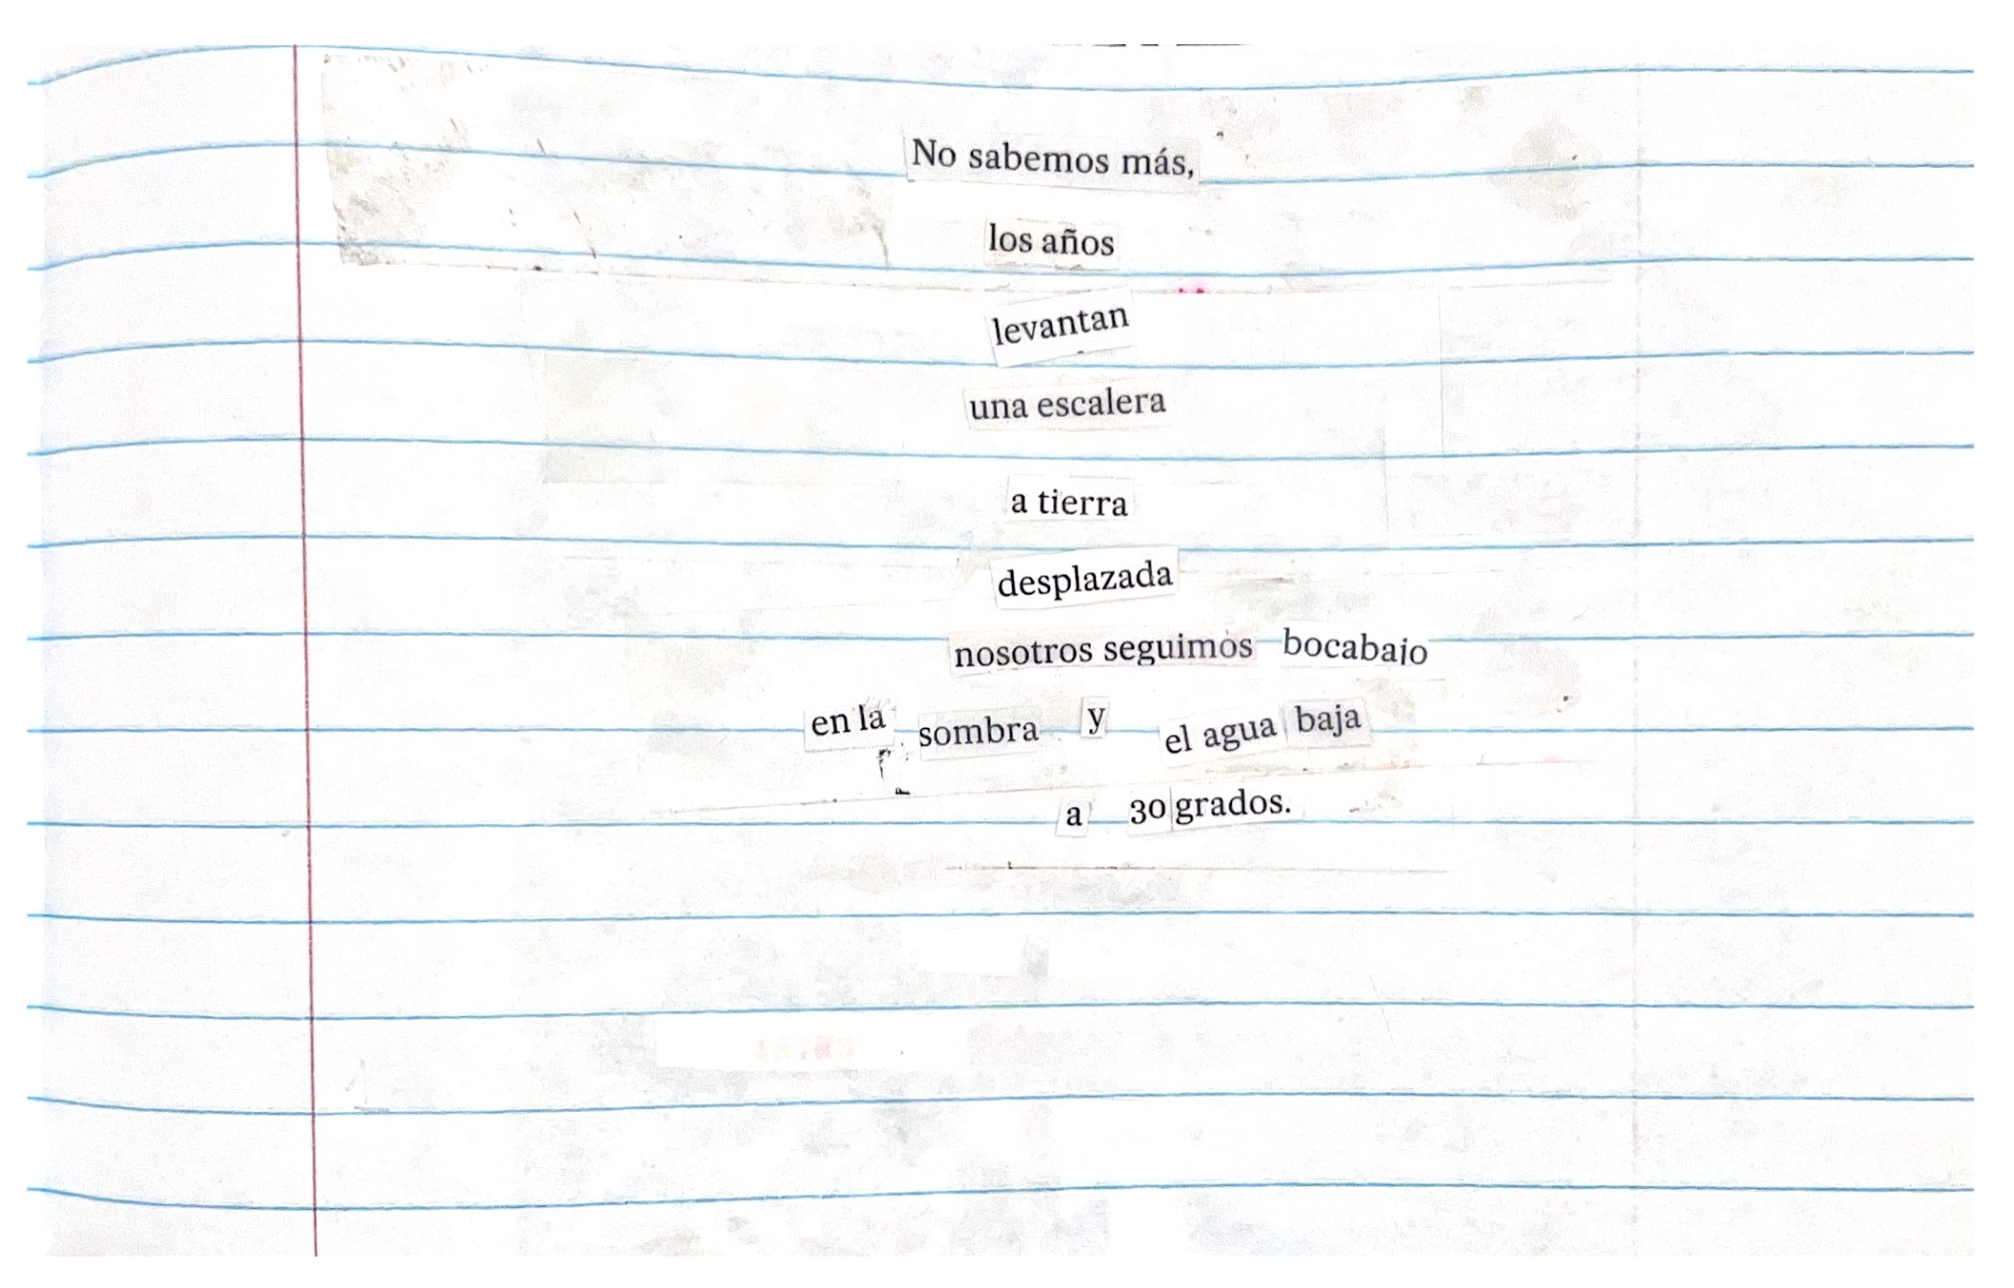 No sabemos más,
los años
levantan
una escalera
a tierra
desplazada
nosotros seguimos bocabajo
en la sombra y el agua baja
a 30 grados.